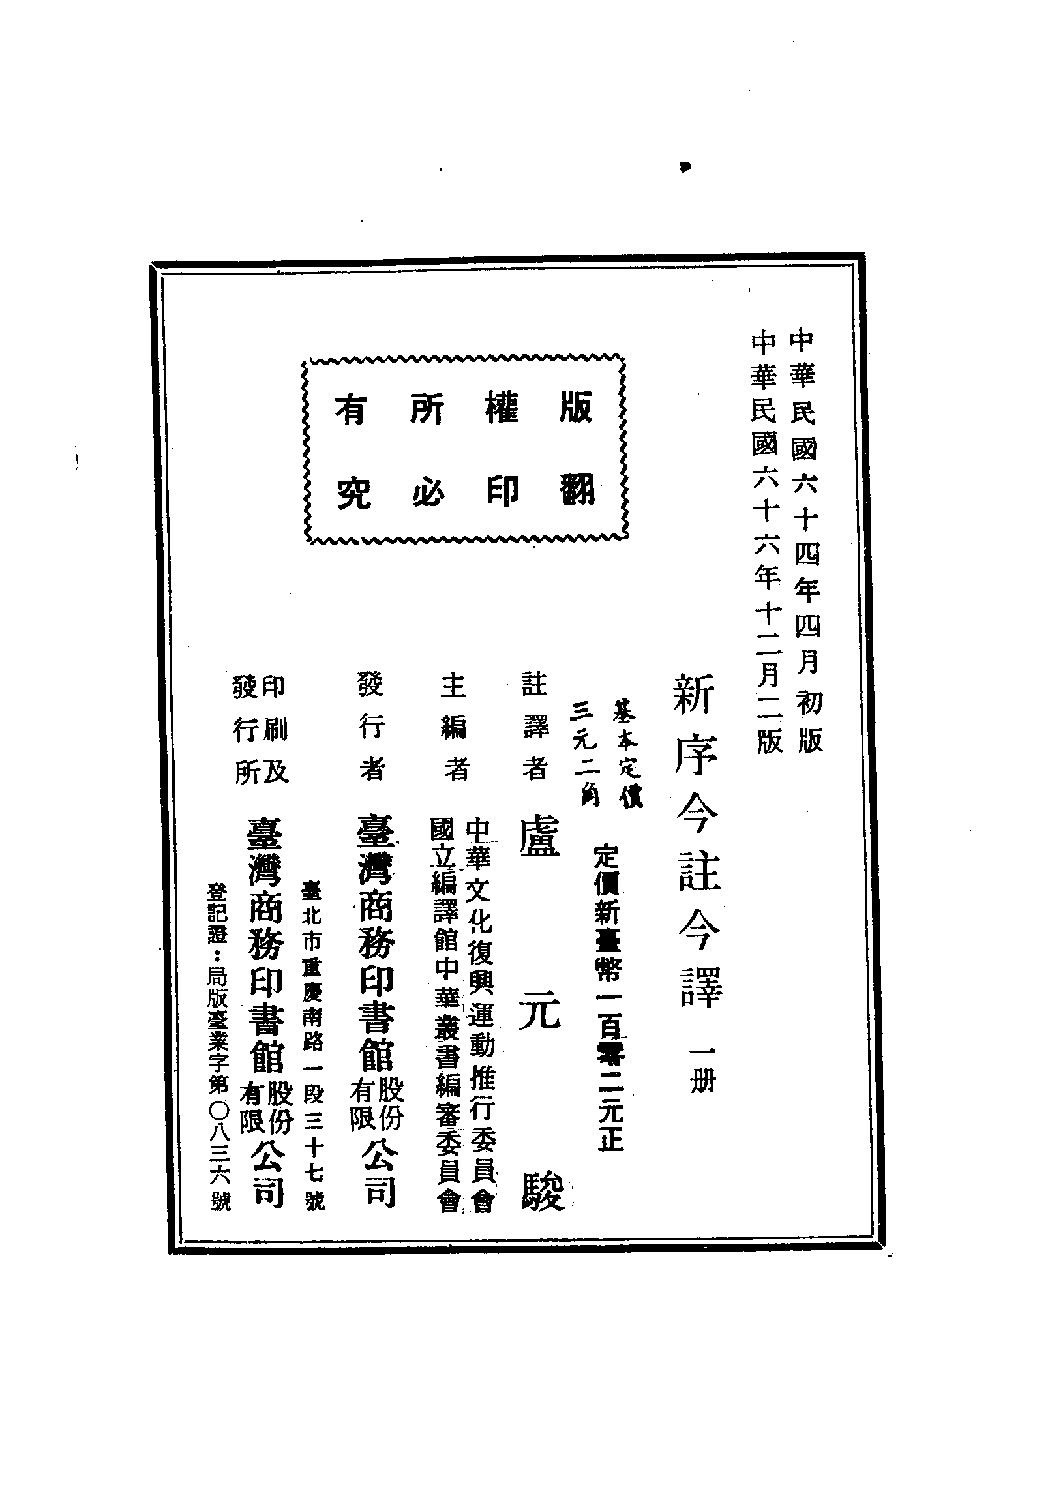 中華民國六十四年四月初版
中華民國六十六年十二月二版
版權所有
翻印必究
新序今註今譯 一册
基本定價
三元二角
定價新臺幣一百零二元正
註譯者 盧元駿
主編者 中華文化復興運動推行委員會
國立編譯館中華叢書編審委員會
發行者 臺灣商務印書館股份有限公司
臺北市重慶南路一段三十七號
印刷及發行所 臺灣商務印書館股份有限公司
登記證：局版臺業字第〇八三六號